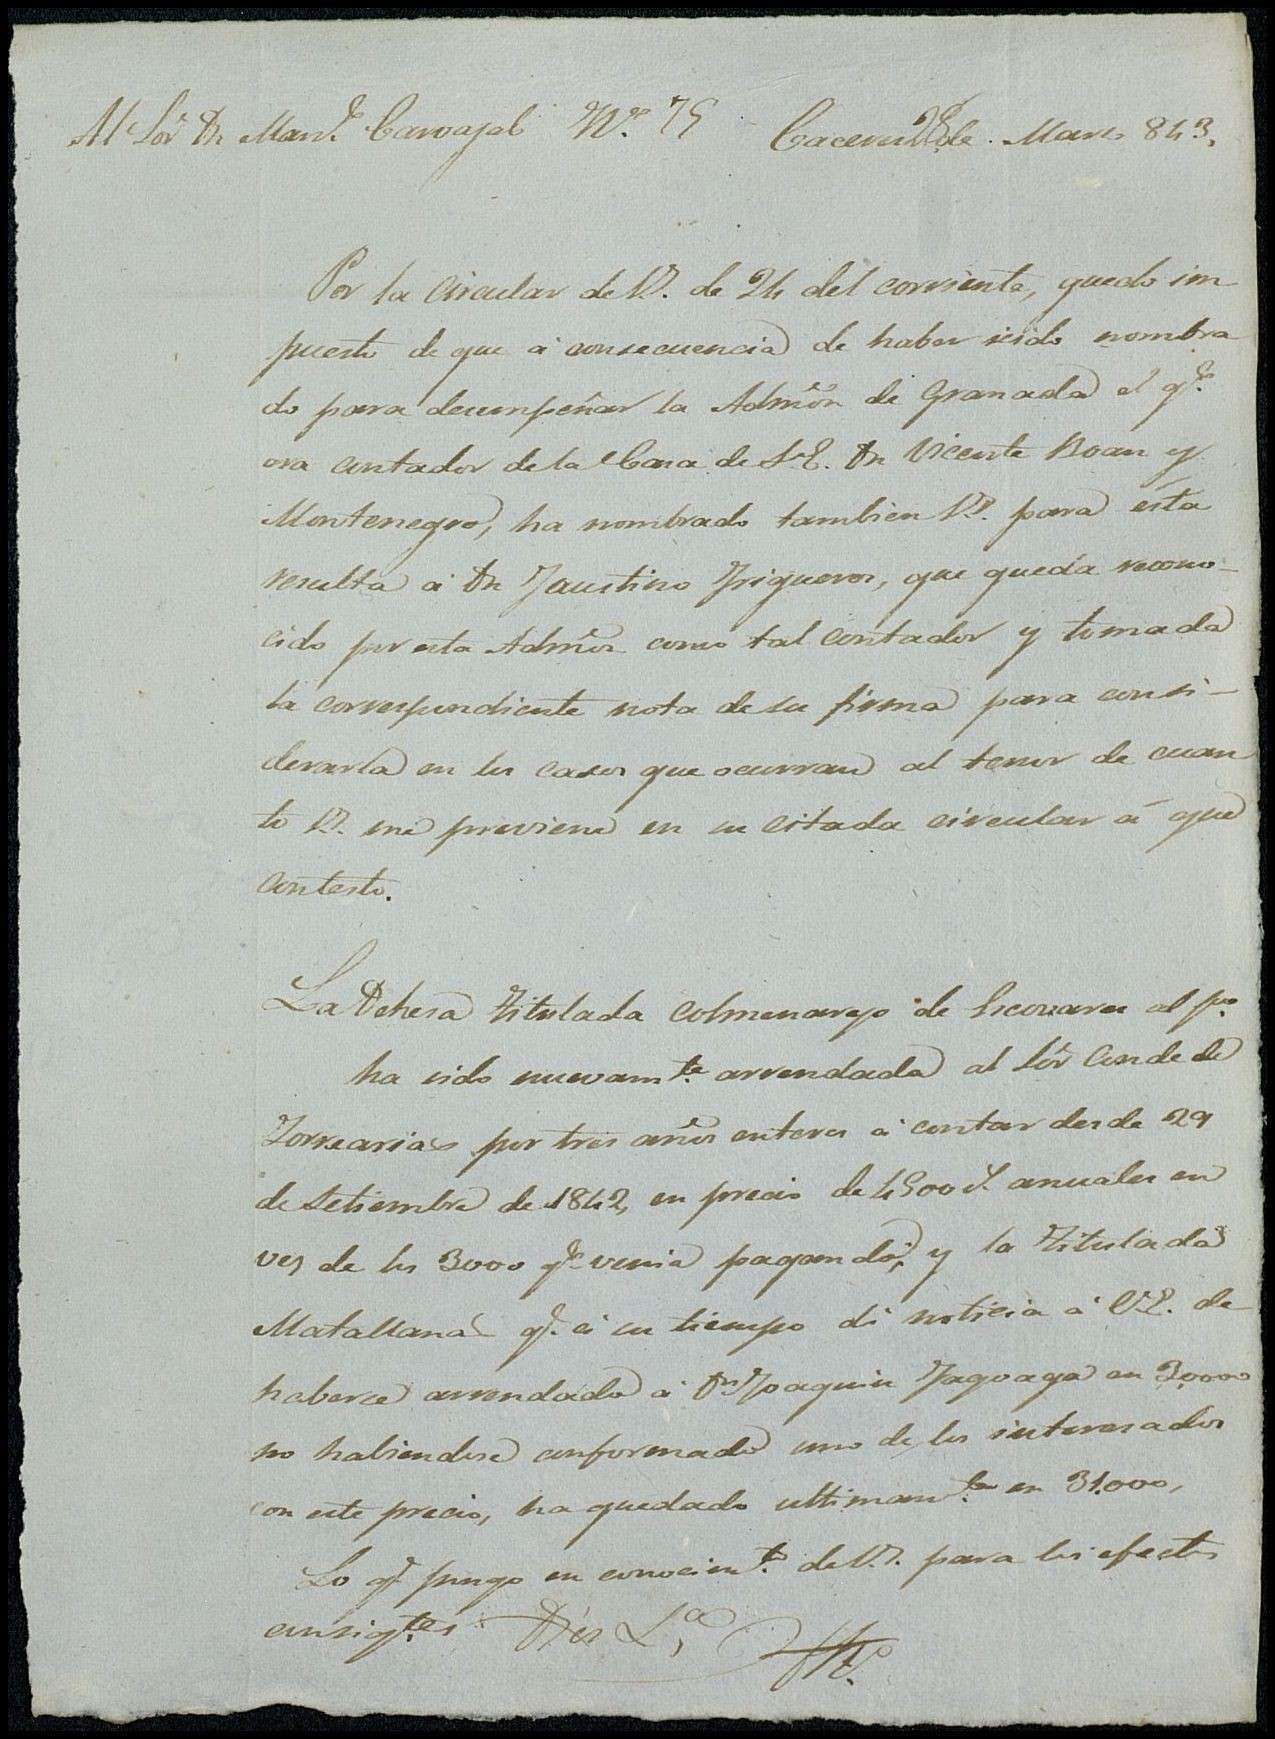 Al Sõr Dn Man.l Carvajal Nº 75 Caceres 28 de Marzo 843.
Por la circular de V. de 24 del corriente, quedo im
puesto de que á consecuencia de haber sido nombra
do para desempeñar la Admõn de Granada el q.e
era contador de la Casa de S.E. Dn Vicente Boan y
Montenegro, ha nombrado tambien V. para ésta
resulta á Dn Faustino Trigueros, que queda recono-
cido por esta Admõn como tal contador y tomada
la correspondiente nota de su firma para consi-
derarla en los casos que ocurran al tenor de cuan
to V. me previene en su citada circular á que
contesto.
La Dehesa titulada Colmenarejo de Escovares al p.o
ha sido nuevam.te arrendada al Sõr Conde de
Torrearias por tres años enteros á contar desde 29
de Setiembre de 1842, en precio de 4500 r.s anuales en
vez de los 3000 q.e venia pagando, y la titulada
Matallana q.e á su tiempo dí noticia á V.E. de
haberse arrendado á Dn Joaquin Jagoaga en 30000
no habiendose conformado uno de los interesados
con este precio, ha quedado ultimam.te en 31.000,
Lo q.e pongo en conocim.to de V. para los efectos
consig.tes Dios L.a